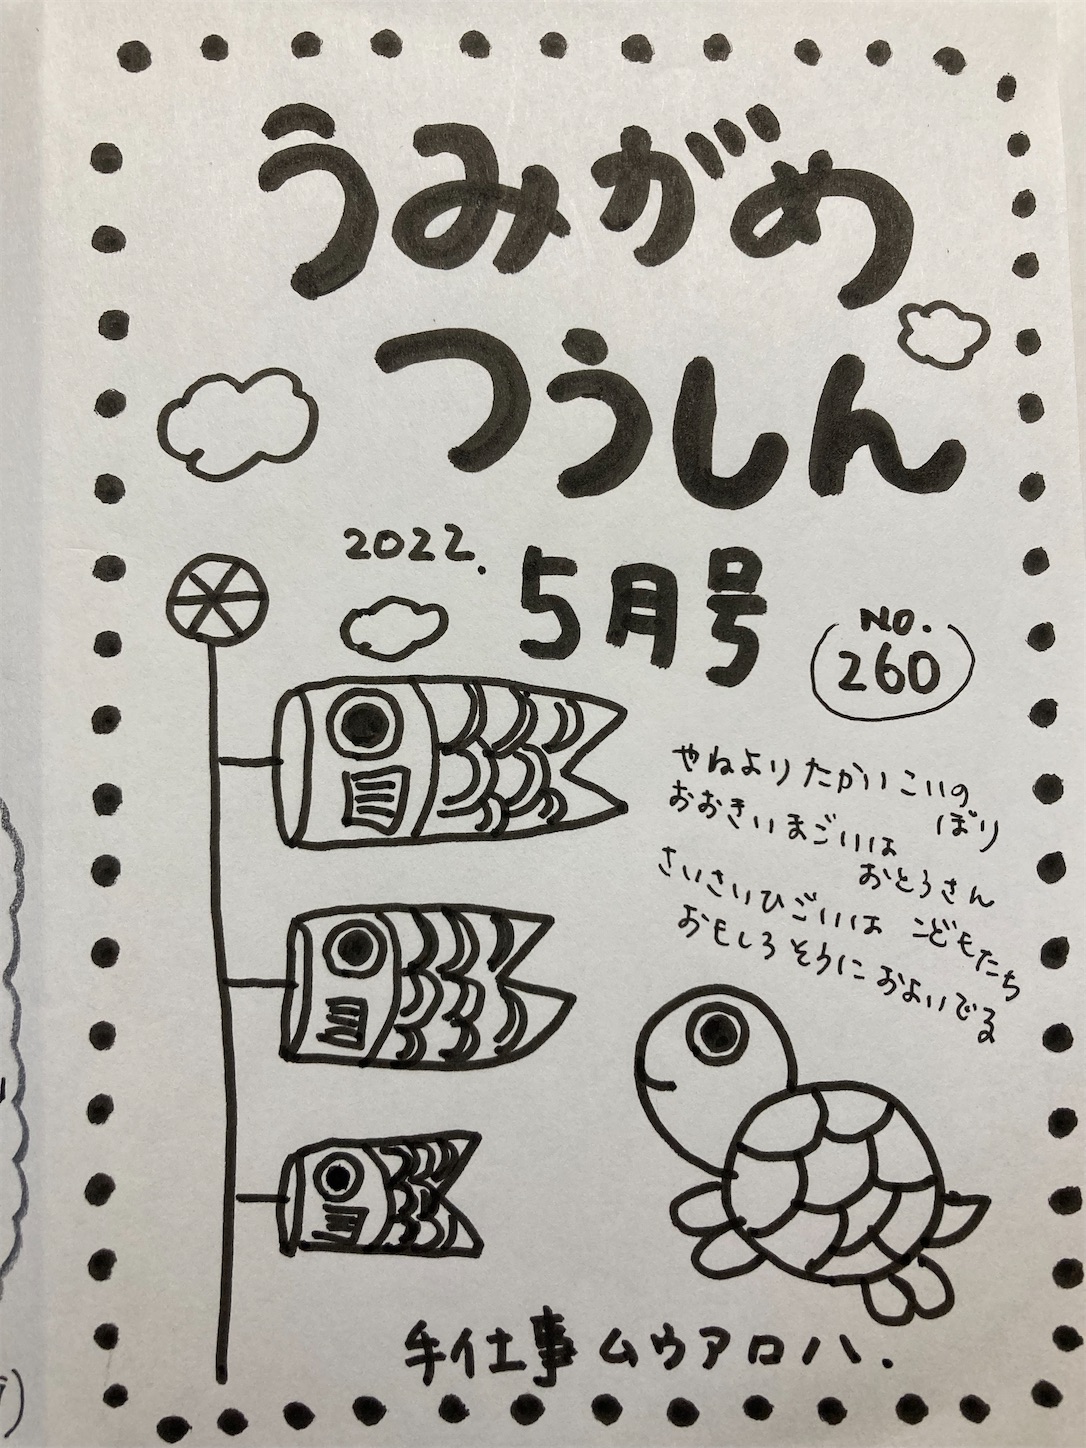 うみがめ
つうしん
2022.
5月号
NO.
260
やねよりたかいこいの
ぼり
おおきいまごいは
おとうさん
さいさいひごいは こどもたち
おもしろそうにおよいでる
手仕事ムウアロハ.